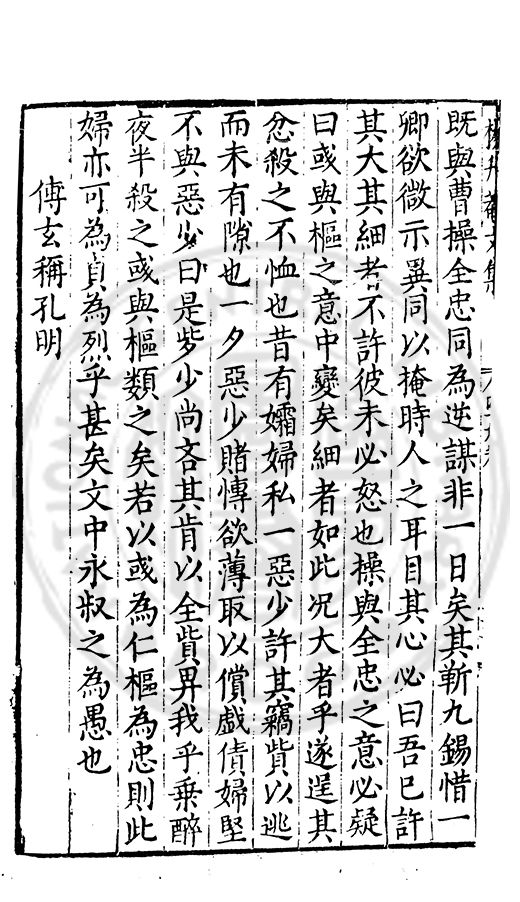 既與曹操全忠同為逆謀非一日矣其靳九錫惜一
卿欲微示異同以掩時人之耳目其心必曰吾已許
其大其細者不許彼未必怒也操與全忠之意必疑
曰彧與樞之意中變矣細者如此况大者乎遂逞其
忿殺之不恤也昔有孀婦私一惡少許其竊貲以逃
而未有隙也一夕惡少賭慱欲薄取以償戲債婦堅
不與惡少曰是些少尚吝其肯以全貲畀我乎乗醉
夜半殺之彧與樞類之矣若以彧為仁樞為忠則此
婦亦可為貞為烈乎甚矣文中永叔之為愚也
傅玄稱孔明